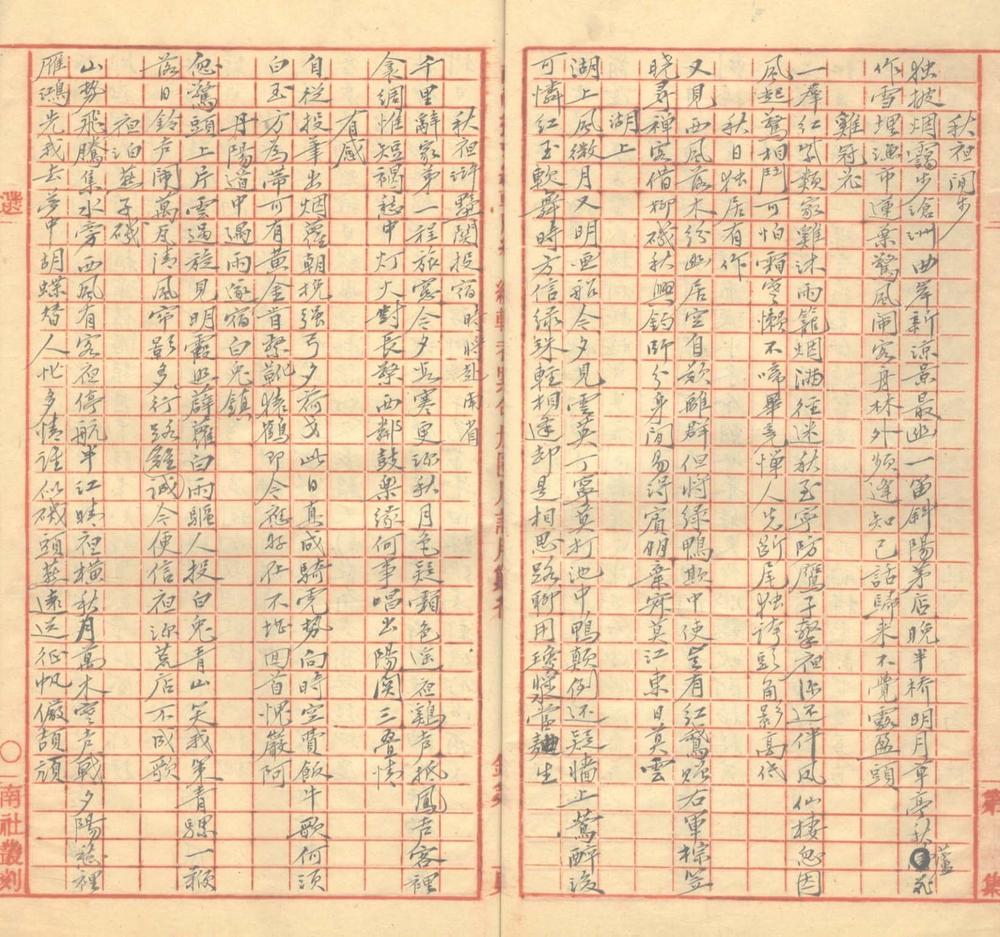 秋夜閒步
独披烟靄步滄洲曲岸新涼景最幽一笛斜陽茅店晚半橋明月草亭秋蘆花
作雪埋漁市連葉驚風闹客舟林外頻逢知己話歸来不覺露盈頭
雞冠花
一羣紅紫類家雞沐雨籠烟滿徑迷秋至寧防鷹子擊夜深还伴凤仙棲忽因
風起驚相鬥可怕霜寒懒不啼畢竟憚人先断尾独誇頭角影高低
秋日独居有作
又見西風落木紛幽居空自歎離群但将绿鴨欺中使豈有紅鵞赚右軍棕笠
晓尋禅客借柳磯秋興钓師分身闲易得賓朋棄寂莫江東日莫雲
湖上
湖上風微月又明画船今夕見雲英丁寧莫打池中鴨顛倒还疑墙上鶯醉後
可憐紅玉軟舞時方信绿珠輕相逢却是相思路聊用瓊漿當麯生
秋夜滸墅関投宿時将赴南省
千里辭家第一程旅窓今夕起寒更深秋月色疑霜色遥夜鷄声抵鳳声客裡
衾绸惟短褐愁中灯火對長檠西鄰鼓樂缘何事唱出陽関三叠情
有感
自從投筆出烟蘿朝挽强弓夕荷戈此日真成騎虎势向時空費飯牛歌何須
白玉方為带可有黄金肯繫靴猿鶴即今應好在不堪回首愧巖阿
丹陽道中遇雨遂宿白兎鎮
忽驚頭上片雲過旋見明霞照薜蘿白雨驅人投白兎青山笑我策青騾一鞭
落日鈴声闹萬瓦清風帘影多行路難誠今便信夜深荒店不成歌
夜泊燕子磯
山势飛騰集水旁西風有客夜停航半江晴夜横秋月萬木寒声戰夕陽穩裡
雁鴻先我去夢中胡蝶替人忙多情誰似磯頭燕遠送征帆儼頡頏
選
〇
南社叢刻
第
集